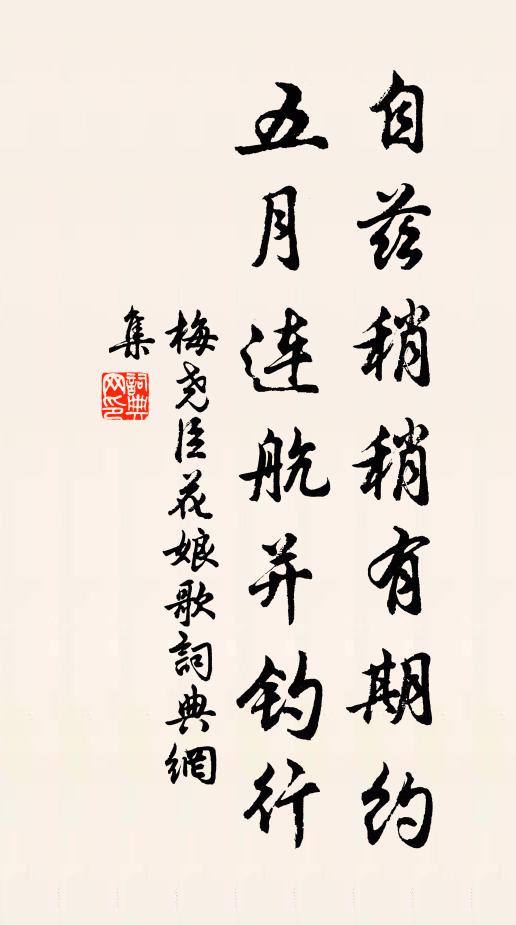 自兹稍稍有期约
五月连航并钓行
梅尧臣花娘歌詞典網
集
詞典
网印